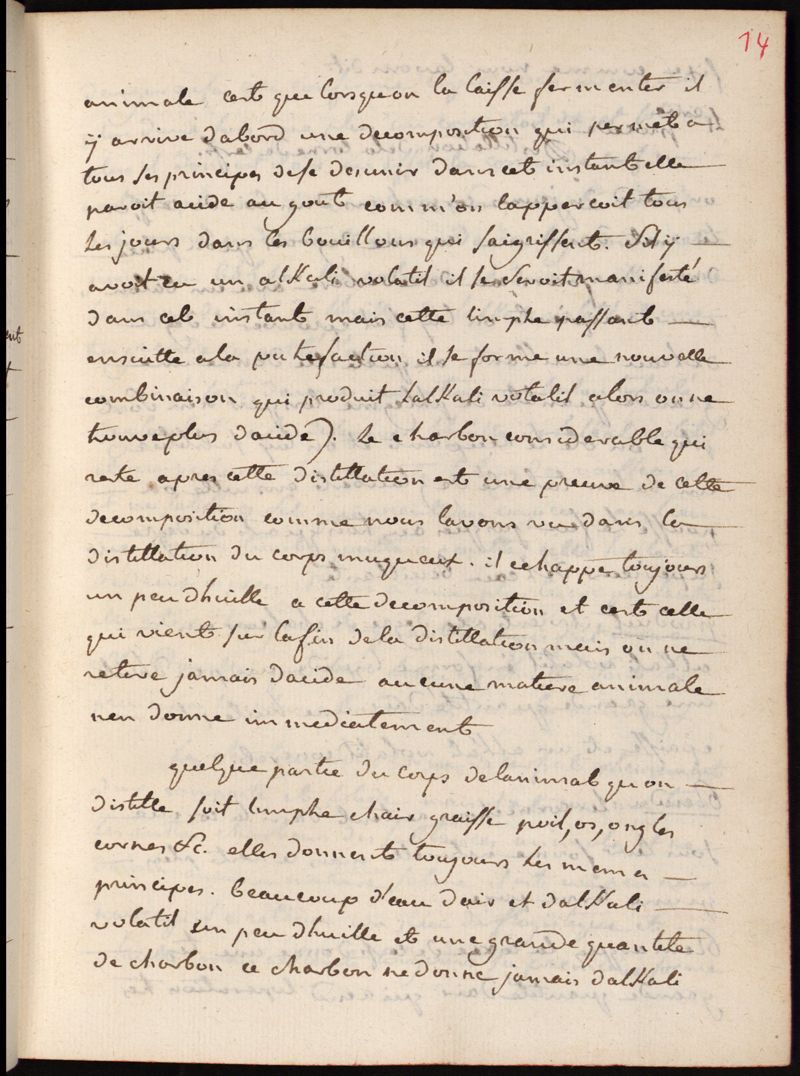 14
animale cest que lorsqu'on la laisse fermenter il
y arrive dabord une decomposition qui permet a
tous ses principes de se desunir dans cet instant elle
paroit acide au gout comm'on lappercoit tous
les jours dans les bouillons qui saigrissent. Sil y
avoit eu un alkali volatil il se seroit manifesté
dans cet instant mais cette limphe passant
ensuitte a la putrefaction il se forme une nouvelle
combinaison qui produit lalkali volatil alors on ne
trouve plus dacide). le charbon considerable qui
reste apres cette distillation est une preuve de cette
decomposition comme nous lavons vu dans la
distillation du corps muqueux. il echappe toujours
un peu dhuille a cette decomposition et cest celle
qui vient sur lafin de la distillation mais on ne
retire jamais dacide aucune matiere animale
nen donne immediatement
quelque partie du corps de lanimal qu on
distille soit limphe chair graisse poil, os, ongles
cornes &c. elles donnent toujours les memes
principes. beaucoup d'eau dair et dalkali
volatil un peu dhuille et une grande quantité
de charbon ce charbon ne donne jamais dalkali